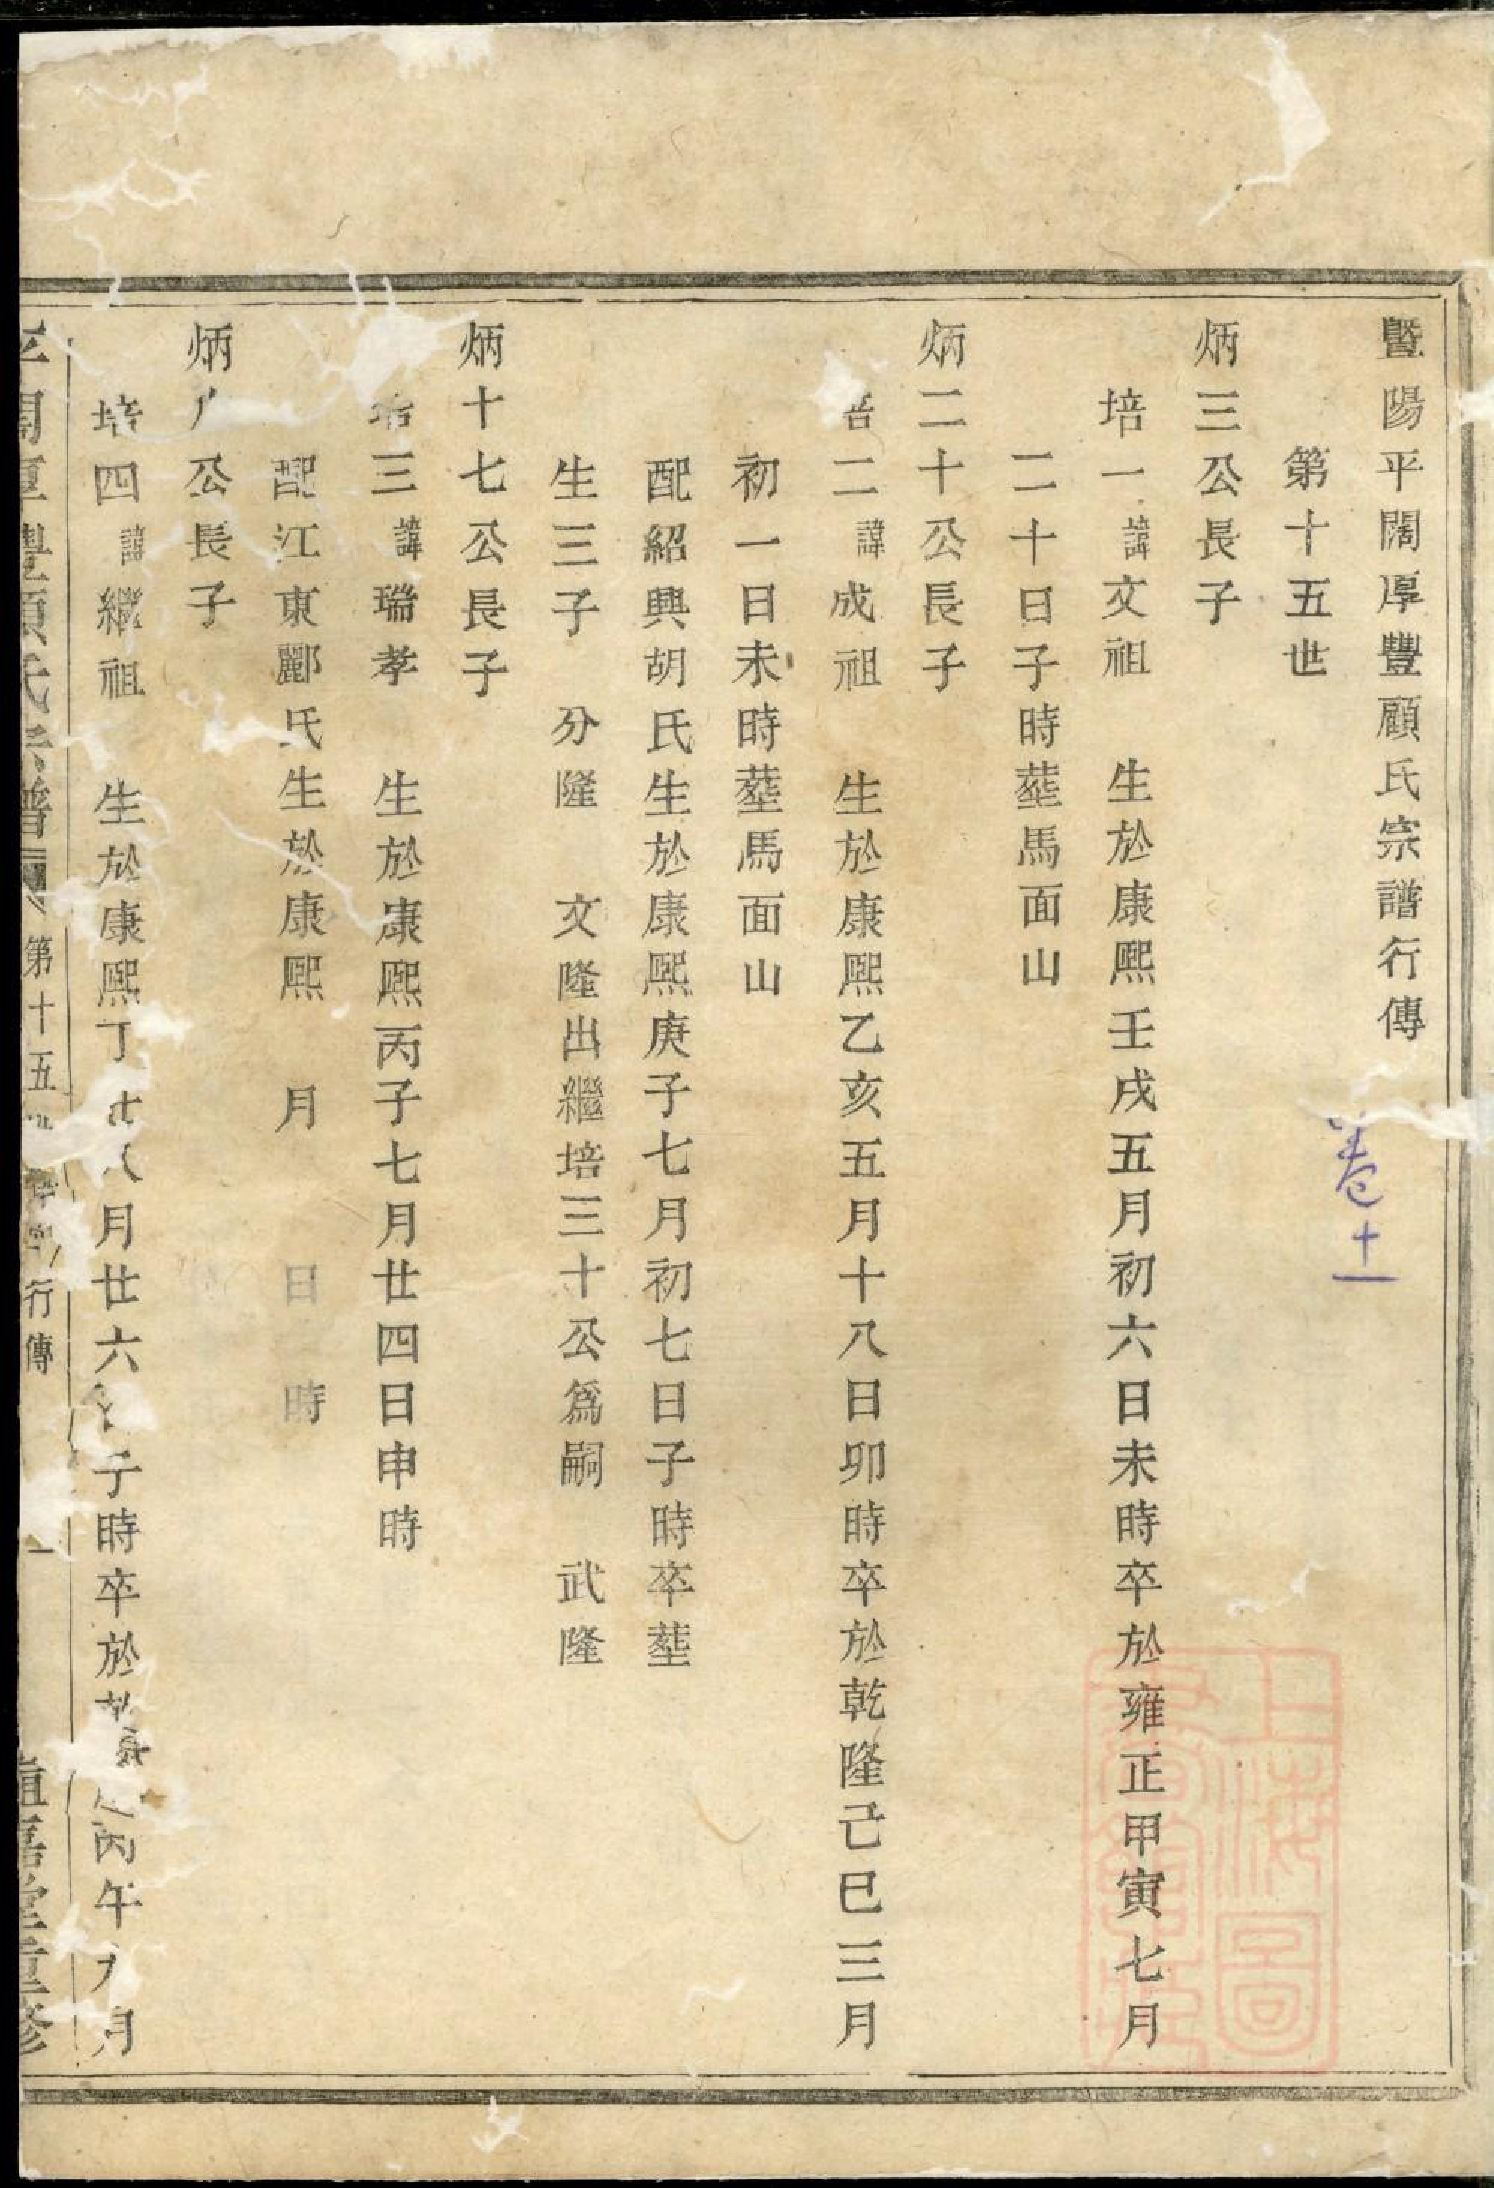 暨陽平闊厚豐顧氏宗譜行傳
卷十一
第十五世
炳三公長子
培一諱文祖 生於康熙壬戌五月初六日未時卒於雍正甲寅七月
二十日子時塟馬面山
炳二十公長子
二諱成祖 生於康熙乙亥五月十八日卯時卒於乾隆己巳三月
初一日未時塟馬面山
配紹興胡氏生於康熙庚子七月初七日子時卒塟
生三子 分隆 文隆出繼培三十公爲嗣 武隆
炳十七公長子
培三諱瑞孝 生於康熙丙子七月廿四日申時
配江東酈氏生於康熙 月 日 時
炳 公長子
培四諱繼祖 生於康熙丁 月廿六 子時卒於 丙午 月
豐顧氏宗譜 第十五 行傳
一
堂重修
上海圖書館藏